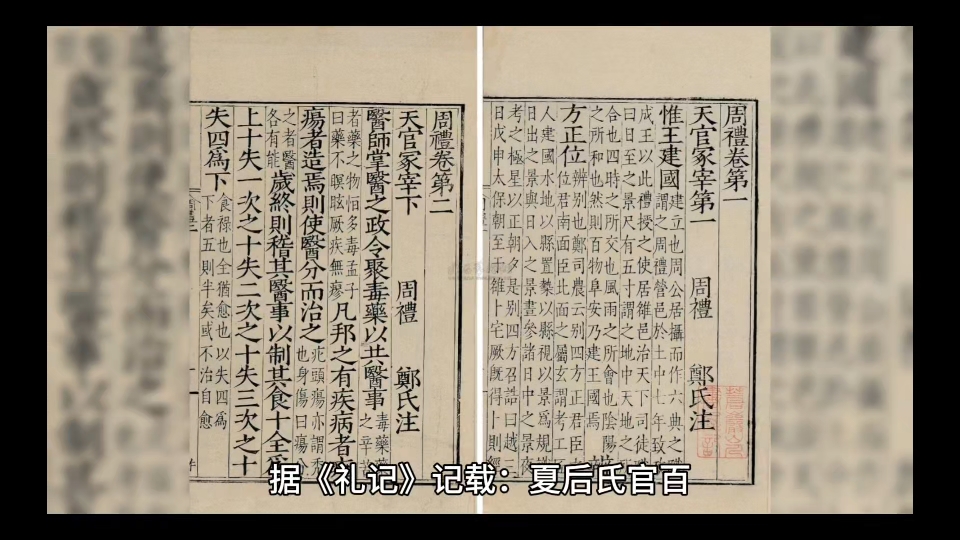 周禮卷第一
天官冢宰第一 周禮 鄭氏注
惟王建國 建立也周公居攝而作六典之 謂之周禮營邑於土中七年致
成王以此禮授之使居雒邑治天下司徒
曰日至之景尺有五寸謂之地中天地之
合也四時之所交也風雨之所會也陰陽
之所和也然則百物阜安乃建王國焉
方正位 辨別也鄭司農云別四方正君臣 位君南面臣北面之屬玄謂考工
人建國水地以縣置槷以縣視以景爲規
日出之景與日入之景晝參諸日中之景夜
考之極星以正朝夕是別四方召誥曰越
日戊申太保朝至于雒卜宅厥既得卜則經
周禮卷第二
天官冢宰下 周禮 鄭氏注
醫師掌醫之政令聚毒藥以共醫事 毒藥 之辛
者藥之物恒多毒孟子 曰藥不瞑眩厥疾無瘳 凡邦之有疾病者
瘍者造焉則使醫分而治之 疕頭瘍亦謂禿 也身傷曰瘍分
之者醫 各有能 歲終則稽其醫事以制其食十全爲
上十失一次之十失二次之十失三次之十
失四爲下 食祿也全猶愈也以失四爲 下者五則半矣或不治自愈
据《礼记》记载：夏后氏官百